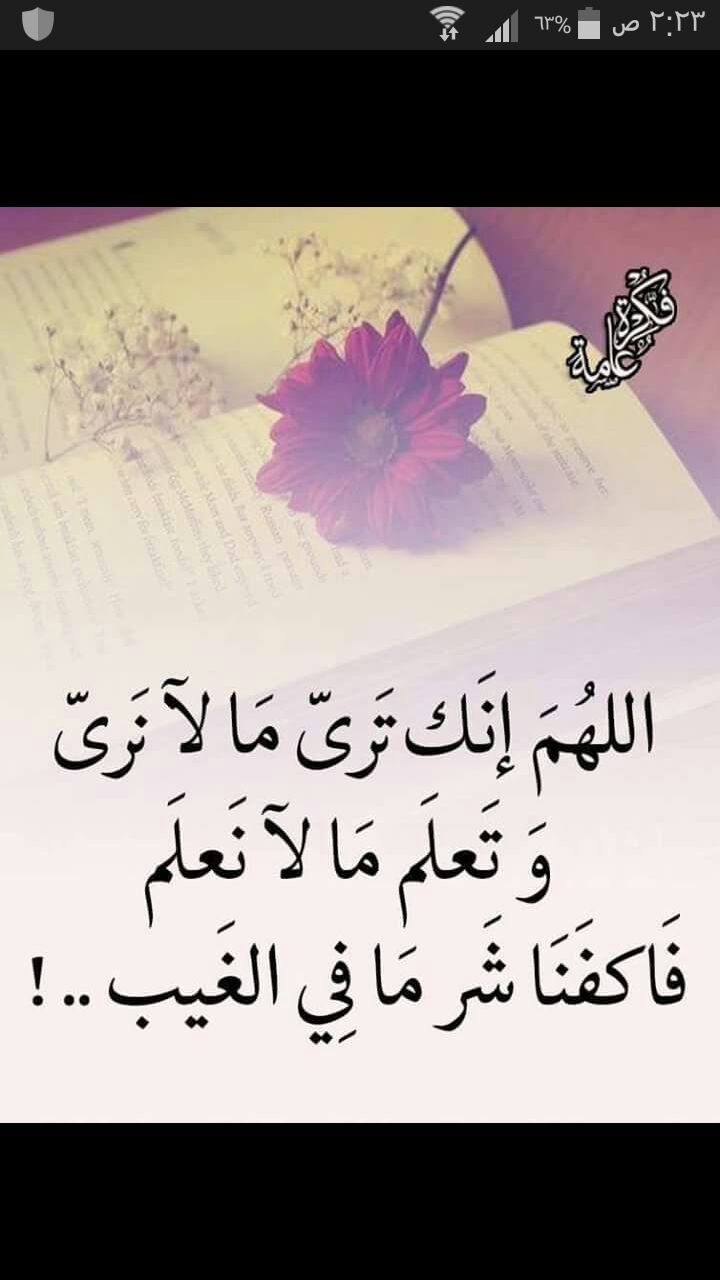 ٢:٢٣ ص ٦٣%
فكرة عامة
اللهُمَ إنَك تَرىّ مَا لآ نَرىّ
وَ تَعلَم مَا لآ نَعلَم
فَاكفَنَا شَر مَا فِي الغَيب .. !